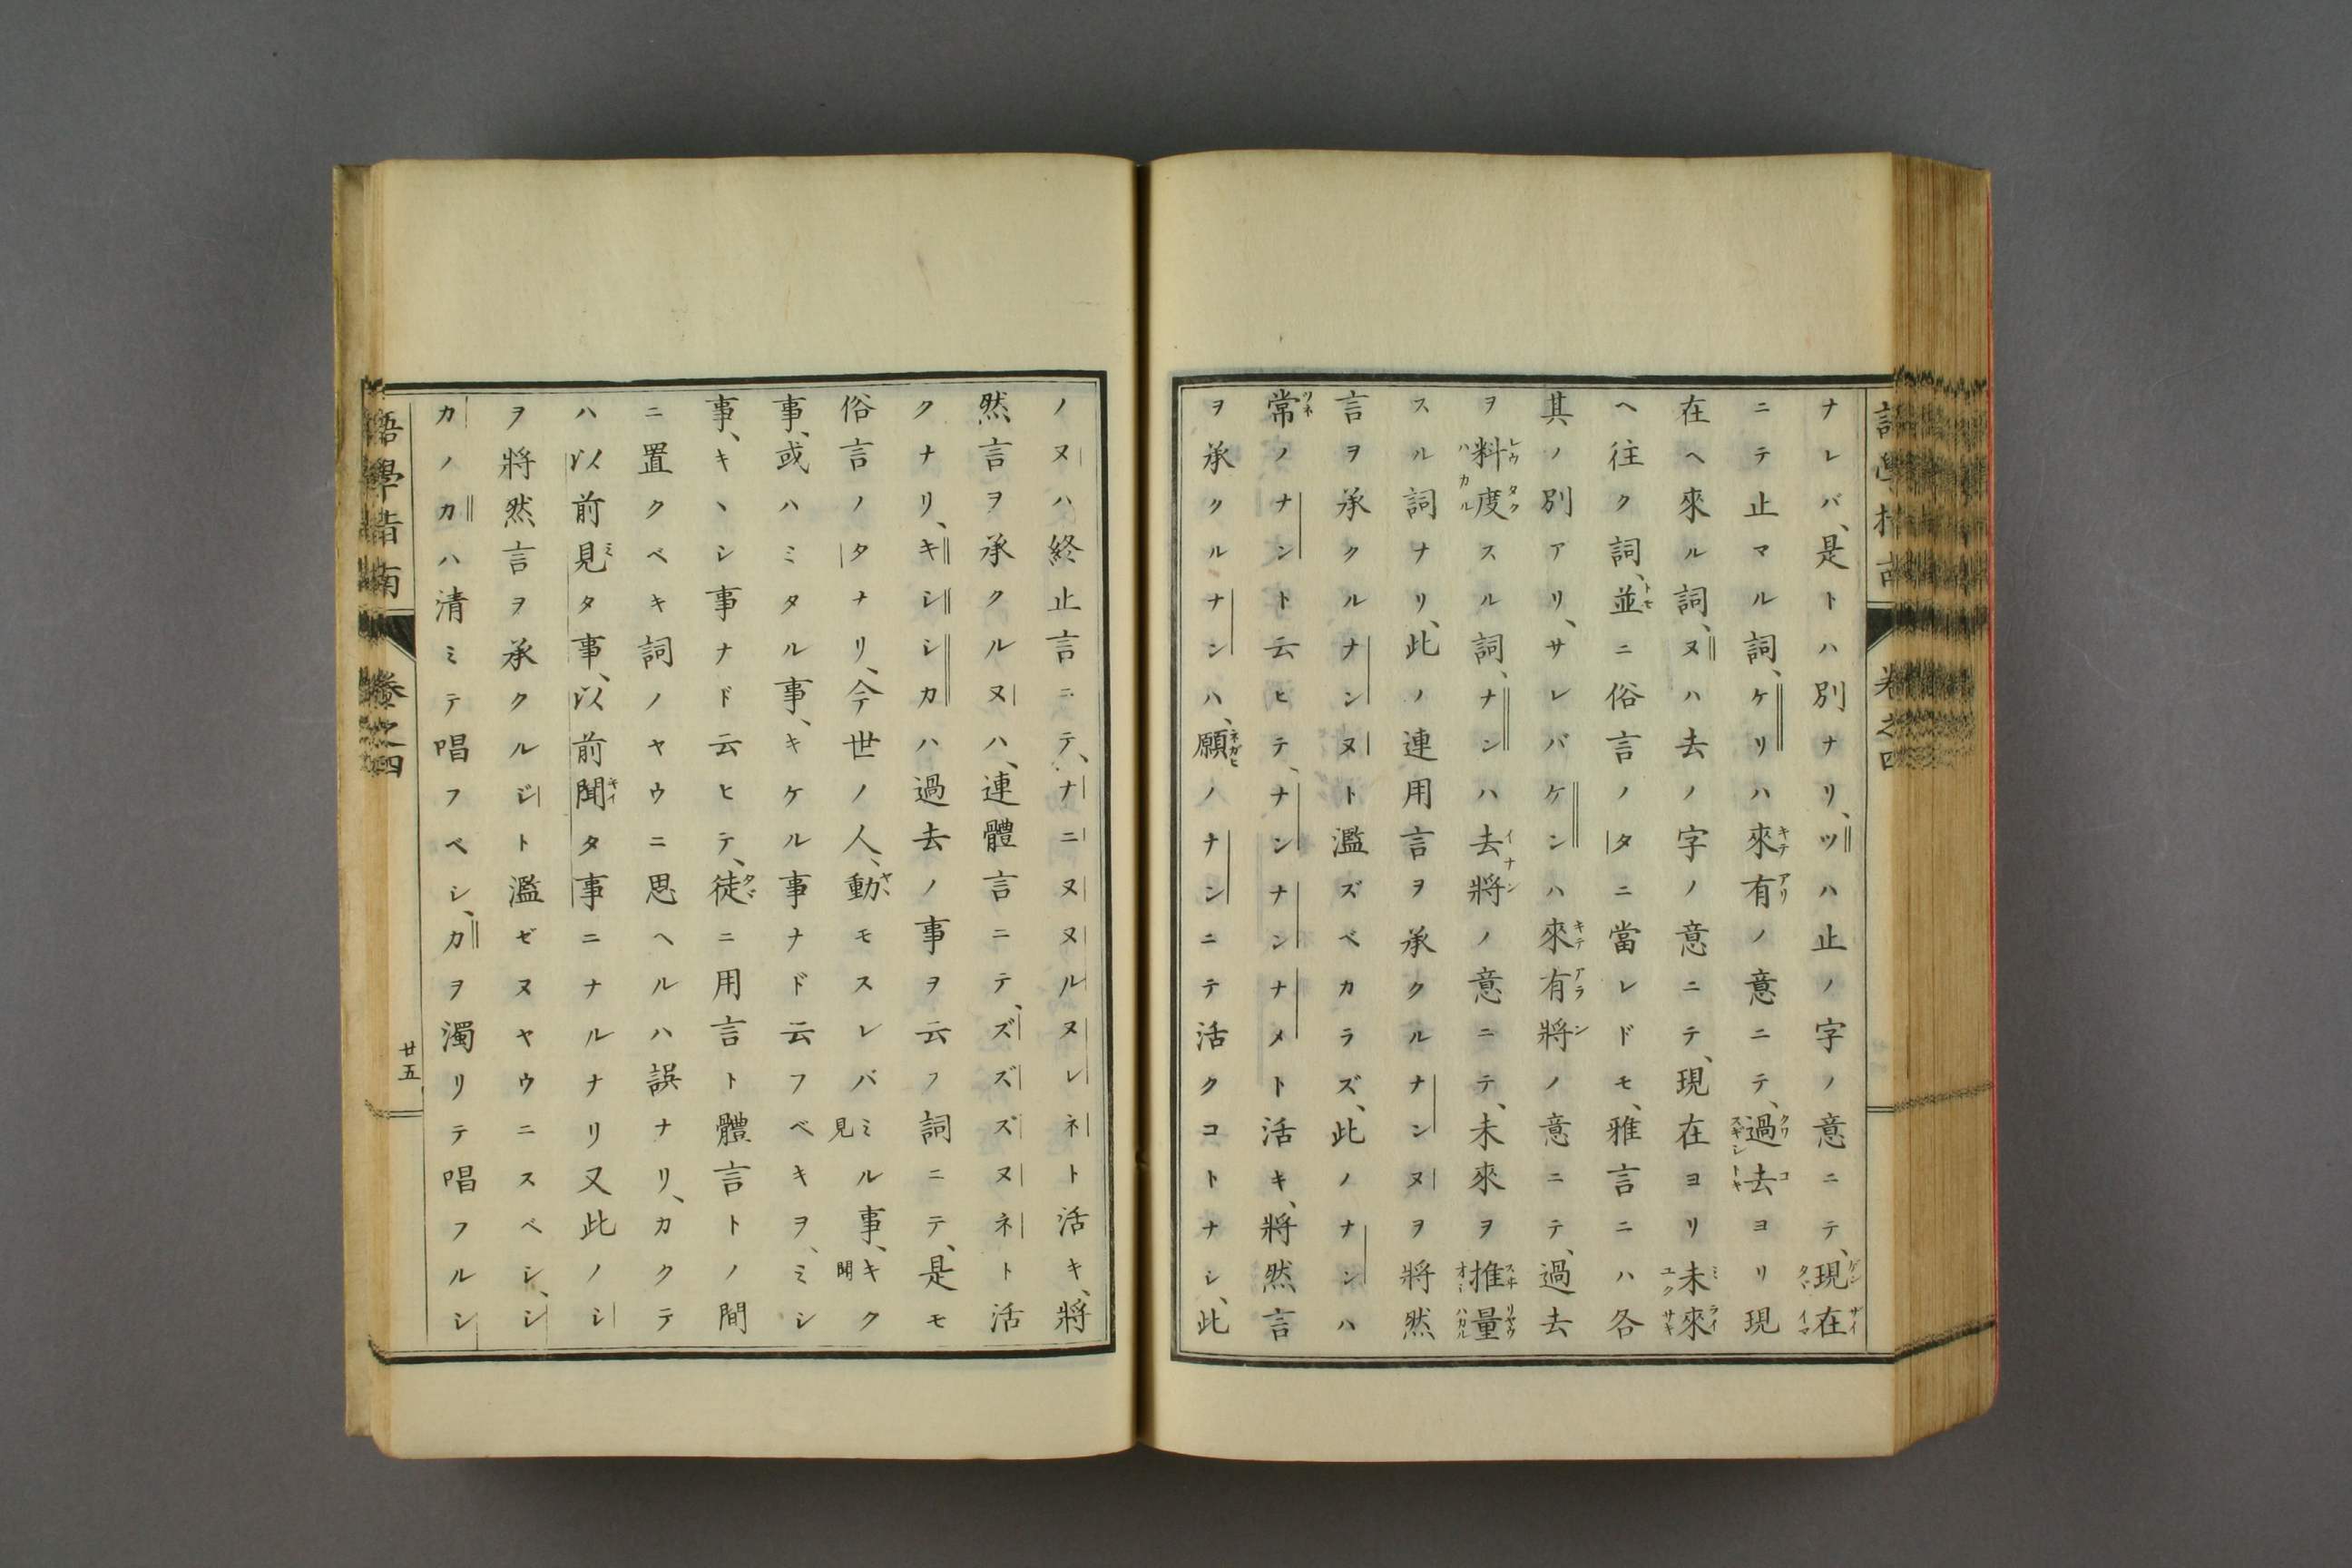 ナレバ、是トハ別ナリ、ツハ止ノ字ノ意ニテ、現在
ニテ止マル詞、ケリハ來有ノ意ニテ、過去ヨリ現
在ヘ來ル詞、ヌハ去ノ字ノ意ニテ、現在ヨリ未來
ヘ往ク詞、並ニ俗言ノタニ當レドモ、雅言ニハ各
其ノ別アリ、サレバケンハ來有將ノ意ニテ、過去
ヲ料度スル詞、ナンハ去將ノ意ニテ、未來ヲ推量
スル詞ナリ、此ノ連用言ヲ承クルナンヌヲ將然
言ヲ承クルナンヌト濫ズベカラズ、此ノナンハ
常ノナント云ヒテ、ナンナンナメト活キ、將然言
ヲ承クルナンハ、願ノナンニテ活クコトナシ、此
ノヌハ終止言ニテ、ナニヌヌルヌレネト活キ、將
然言ヲ承クルヌハ、連體言ニテ、ズズズヌネト活
クナリ、キシシカハ過去ノ事ヲ云フ詞ニテ、是モ
俗言ノタナリ、今世ノ人、動モスレバミ見ル事、キ聞ク
事、或ハミタル事、キケル事ナド云フベキヲ、ミシ
事、キヽシ事ナド云ヒテ、徒ニ用言ト體言トノ間
ニ置クベキ詞ノヤウニ思ヘルハ誤ナリ、カクテ
ハ以前見タ事、以前聞タ事ニナルナリ又此ノシ
ヲ將然言ヲ承クルジト濫ゼヌヤウニスベシ、シ
カノカハ清ミテ唱フベシ、カヲ濁リテ唱フルシ
語學指南
卷之四
廿五
卷之四